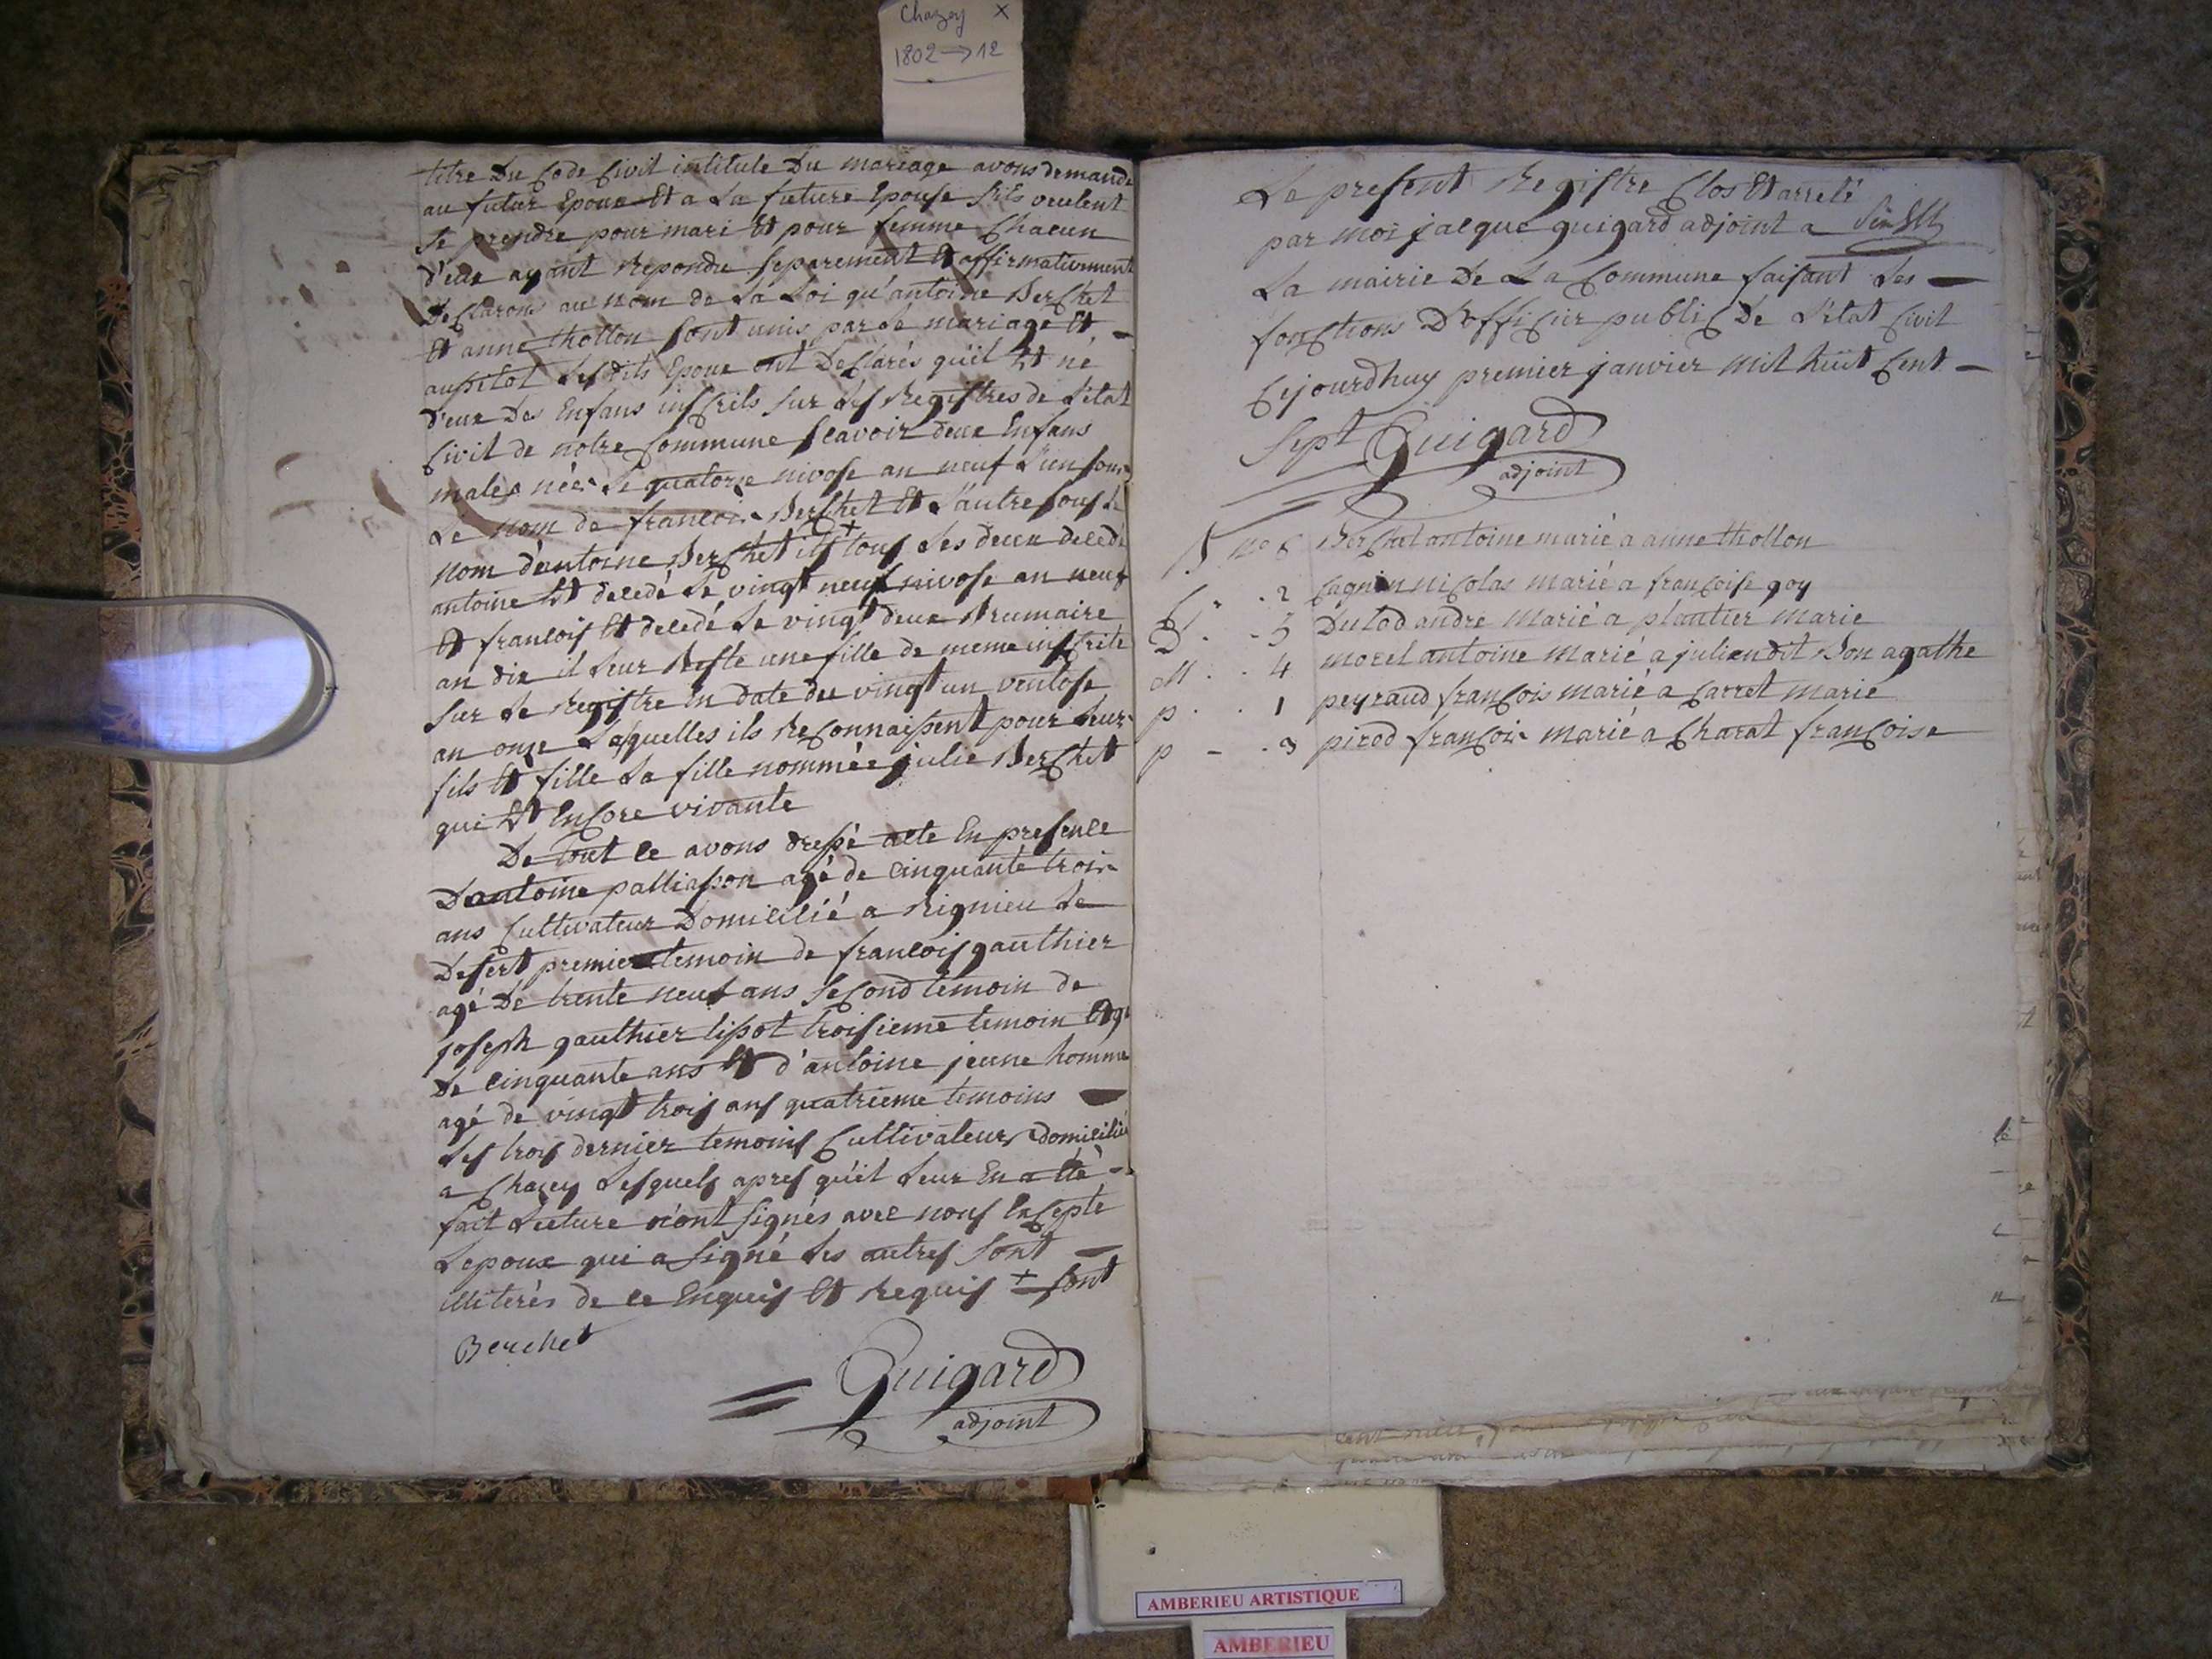 Chazey X
1802 → 12
titre Du Code Civil intitule Du mariage avons demandé
au futur Epoux Et a La future Epouse S'ils veulent
se prendre pour mari Et pour femme Chacun
d'eux ayant Repondu separement Et affirmativement
Declarons au nom de La Loi qu'antoine Berchet
Et anne thollon sont unis par Le mariage Et -
aussitot Lesdits Epoux ont Declarés quil Et né
d'eux Des Enfans inscrits sur Les Registres de L'état
Civil de notre Commune scavoir deux Enfans
males nées Le quatorze nivose an neuf L'un sous
Le nom de francois Berchet Et L'autre sous Le
nom d'antoine Berchet ils + tous Les deux decedé
antoine Et decedé Le vingt neuf nivose an neuf
Et francois Et decedé Le vingt deux Brumaire
an dix il Leur Reste une fille de meme inscrite
sur Le Registre En date du vingt un ventose
an onze Lesquelles ils Reconnaissent pour Leur
fils Et fille La fille nommée julie Berchet
qui Et Encore vivante
De tout ce avons dressé acte En presence
D'antoine palliasson agé de cinquante trois
ans Cultivateur Domicilié a Rignieu Le
Desert premier temoin de francois gauthier
agé De trente neuf ans second temoin de
joseph gauthier tissot troisieme temoin agé
De cinquante ans Et d'antoine jeune homme
agé de vingt trois ans quatrieme temoins -
Les trois dernier temoins Cultivateurs domiciliés
a Chazey Lesquels apres qu'il Leur En a été -
fait Lecture n'ont signés avec nous Excepté
L'epoux qui a signé Les autres sont -
illiterés de ce Enquis Et Requis + sont
Berchet
Guigard
adjoint
Le present Registre Clos Et arreté
par moi jacque guigard adjoint a
La mairie De La Commune faisant Les -
fonctions D'officier public De L'état Civil
Cejourdhuy premier janvier mil huit Cent -
Sept Guigard
adjoint
B no 6 Berchet antoine marié a anne thollon
C . . 2 Cagnin nicolas marié a francoise goy
D . . 5 Dutod andre marié a plantier marie
M . . 4 morel antoine marié a julien dit Bon agathe
p . . 1 peyraud francois marié a Carret marie
p - . 3 pirod francois marié a Charat francoise
AMBERIEU ARTISTIQUE
AMBERIEU